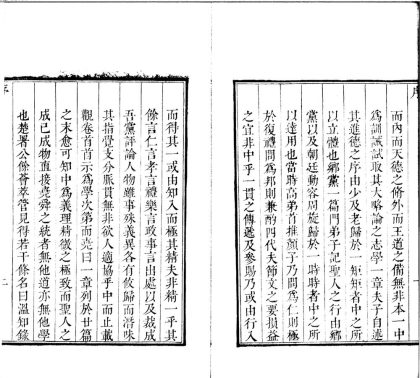 序
而內而天德之脩外而王道之備無非本一中
為訓誡試取其大略論之志學一章夫子自述
其進德之序由少及老歸於一矩者中之所
以立體也鄉黨一篇門弟子記聖人之行由鄉
黨以及朝廷動容周旋歸於一時時者中之所
以達用也當時高弟首推顏子乃問為仁則極
於復禮問為邦則兼酌四代夫節文之要損益
之宜非中乎一貫之傳遞及參賜乃或由行入
而得其一或由知入而極其精夫非精一乎其
餘言仁言孝言禮樂言政事言出處以及裁成
吾黨評論人物雖事殊義異各有攸歸而潛味
其指覺支分脈貫無非欲人適協乎中而止載
觀卷首首示為學次第而堯曰一章列於廿篇
之末愈可知中為義理精微之極致而聖人之
成己成物直接堯舜之統者無他道亦無他學
也楚署公餘薈萃管見得若干條名曰溫知錄
序
二